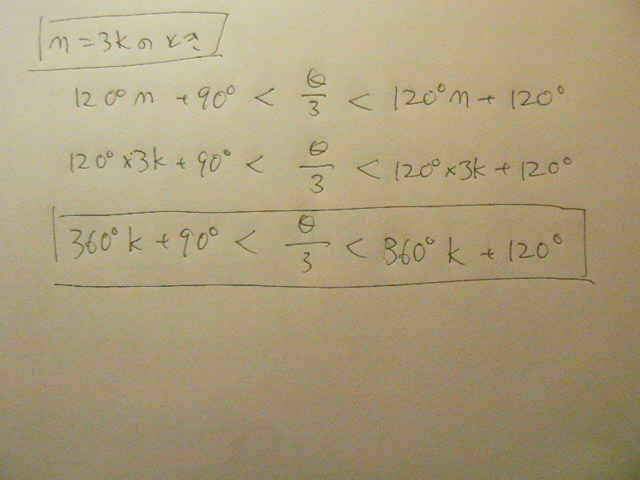 n=3kのとき
120°n+90° < θ/3 < 120°n+120°
120°×3k+90° < θ/3 < 120°×3k+120°
360°k+90° < θ/3 < 360°k+120°